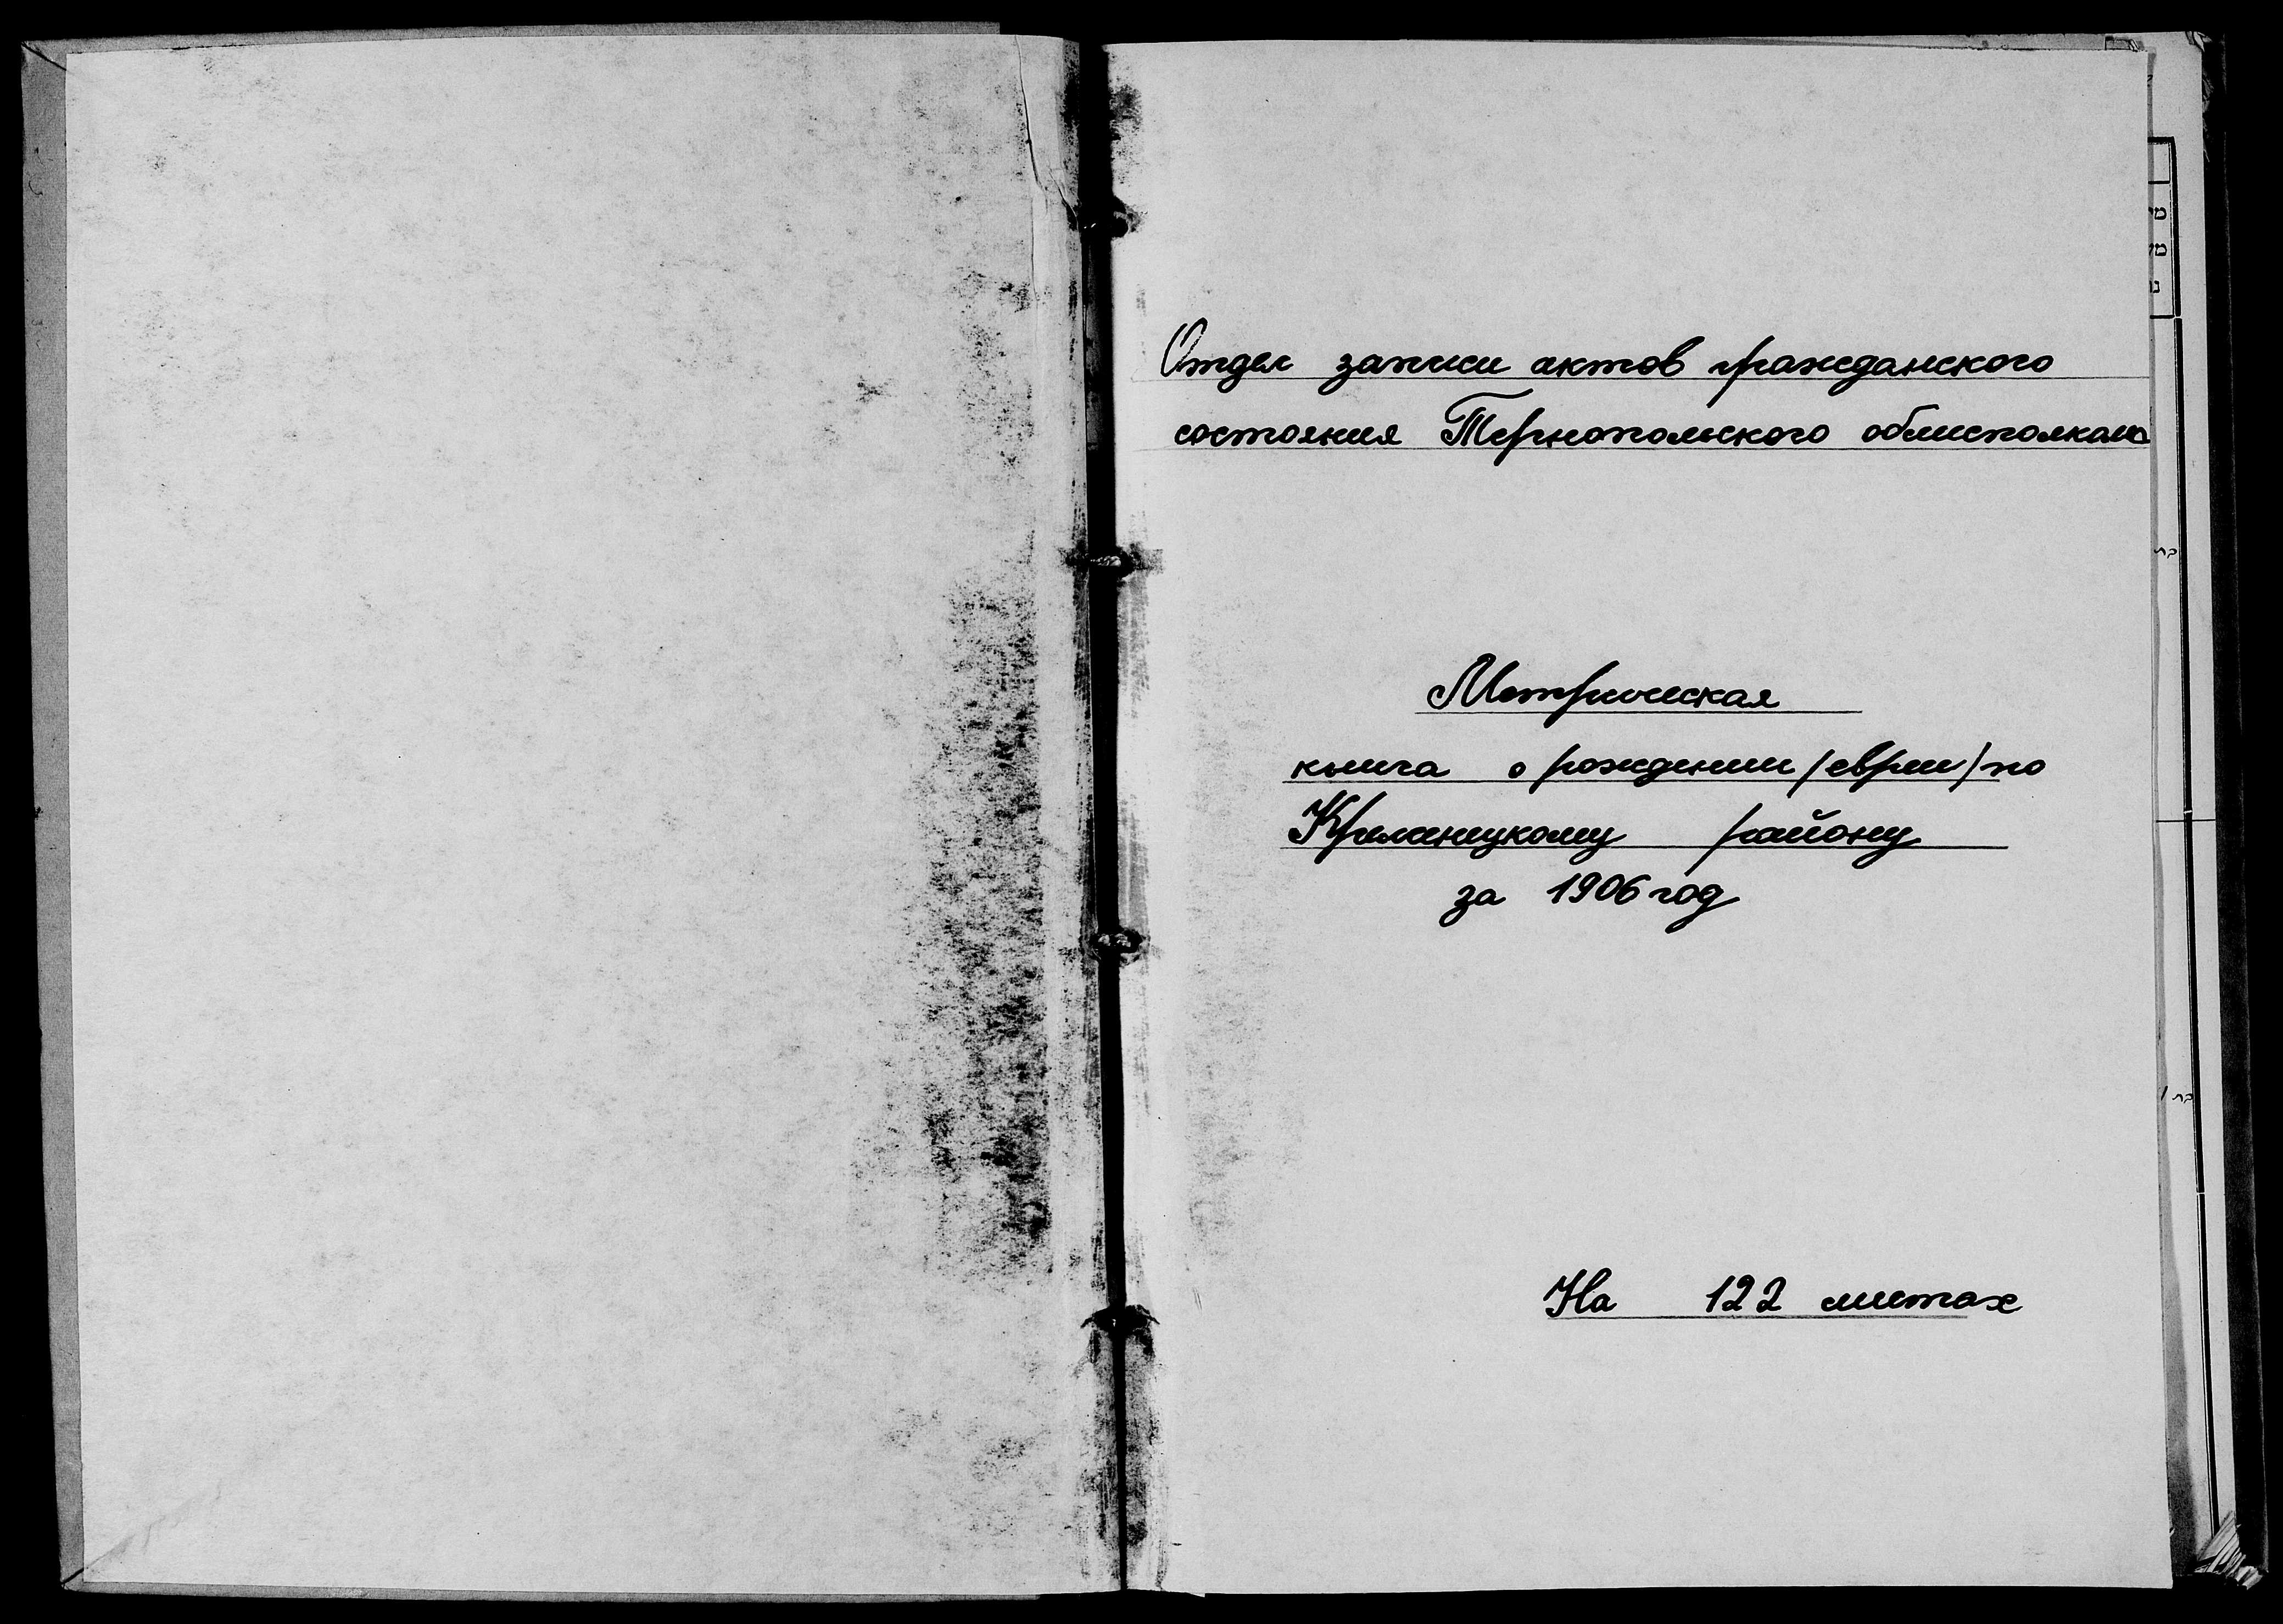 Отдел записи актов гражданского
состояния Тернопольского облисполкома
Метрическая
книга о рождении /евреи/ по
Кременецкому району
за 1906 год
На 122 листах